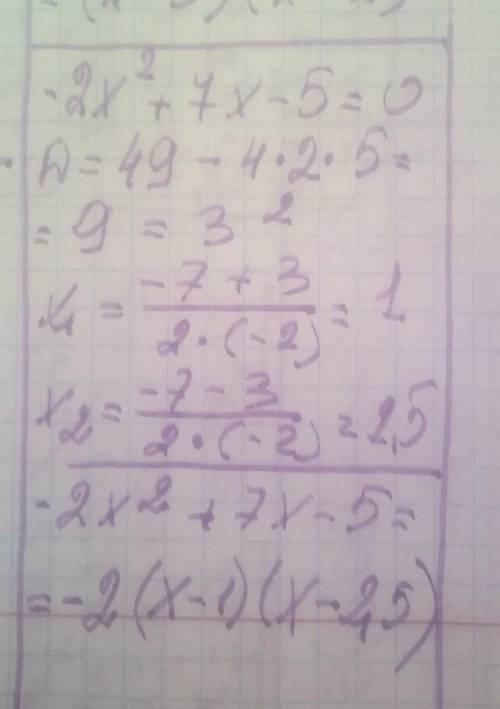 -2x² + 7x - 5 = 0
D = 49 - 4·2·5 =
= 9 = 3²
x₁ = (-7 + 3)/(2·(-2)) = 1
x₂ = (-7 - 3)/(2·(-2)) = 2,5
-2x² + 7x - 5 =
= -2(x-1)(x-2,5)